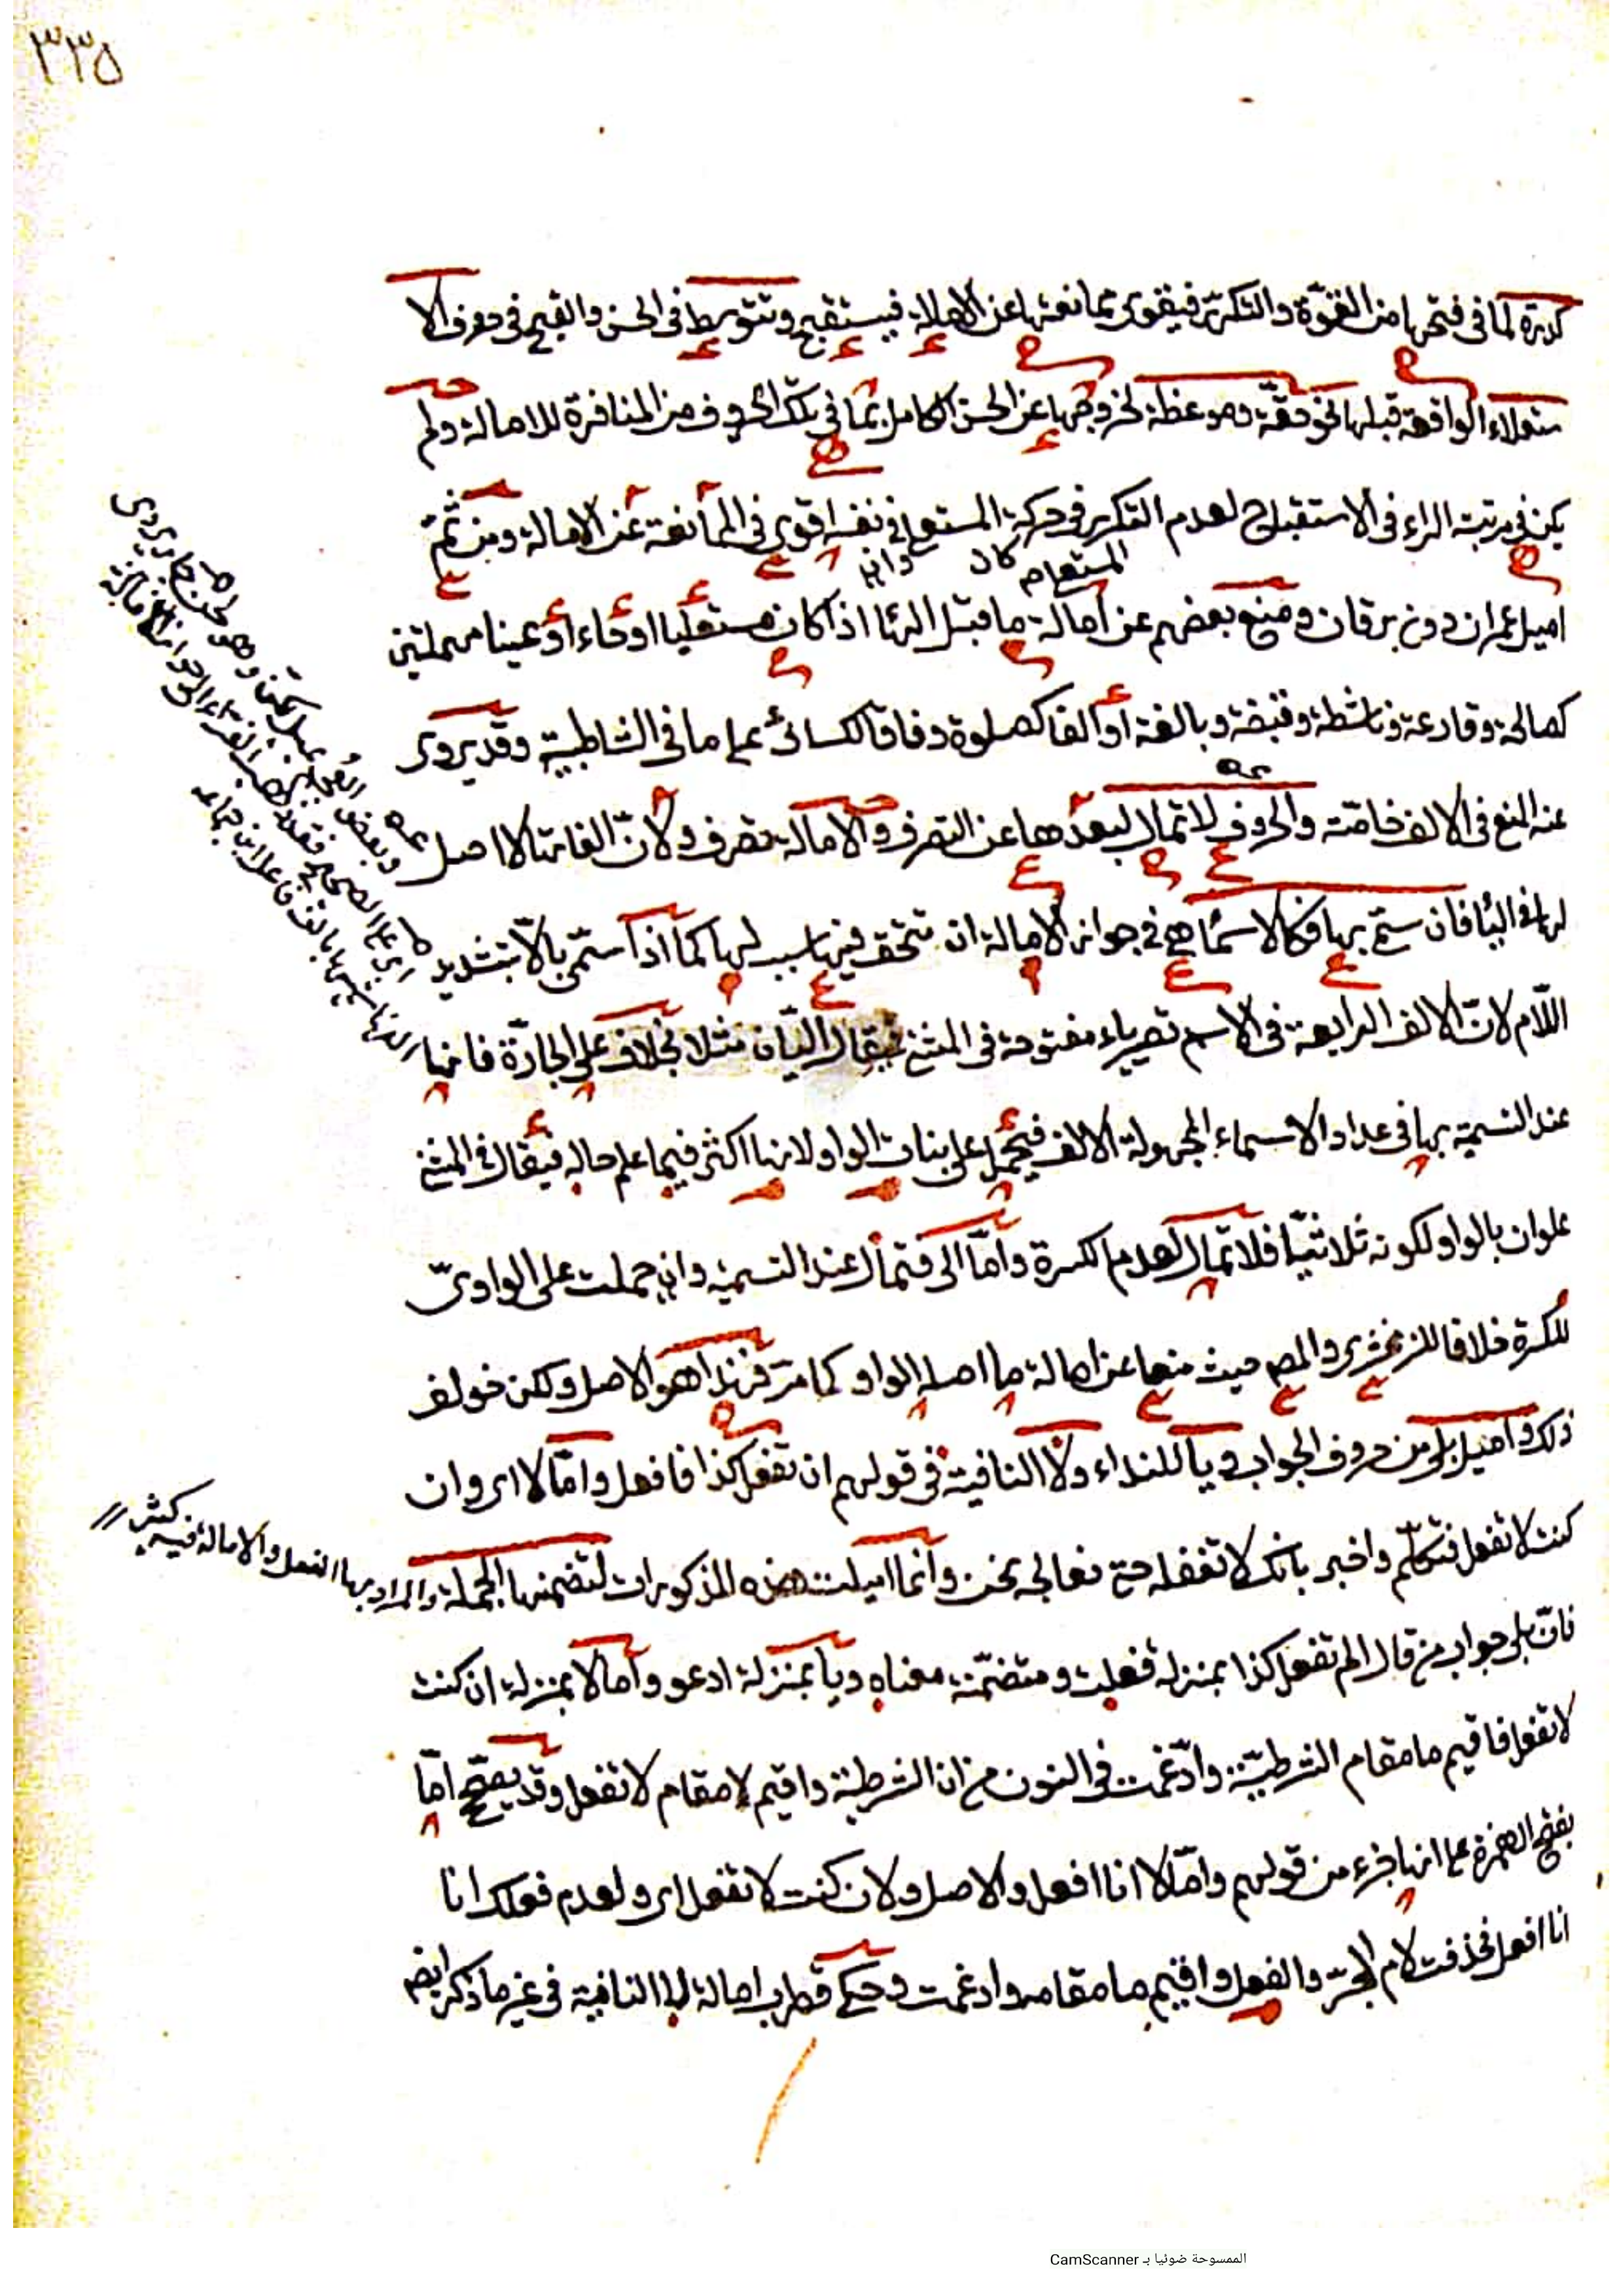 ٣٣٥
كدرة لما في فتحها من القوة والتكرير فيقوى ممانعتها عن الامالة فيستقبح وتتوسط في الحسن والقبح في حروف الا
ستعلاء الواقعة قبلها نحو حقة وموعظة لخروجها عن الحسن الكامل بما في تلك الحروف من المنافرة للامالة ولم
يكن في مرتبة الراء في الاستقباح لعدم التكرير في حركة المستعلى في نفسه اقوى في الممانعة عن الامالة ومن ثم
وان كان المستعلى
اميل عمران دون برقان ومنع بعضهم عن امالة ما قبل الهاء اذا كان مستعليا او حاء او عينا مهملتين
كصالحة وقارعة وناشطة وقبضة وبالغة او الفا كصلوة وفاقا للكسائي على ما في الشاطبية وقد يروى
عنه المنع في الالف خاصة والحروف لا تمال لبعدها عن التصرف والامالة تصرف ولان الفاتها لا اصل
لها في الياء فان سمى بها فكالاسماء هي في جواز الامالة ان تتحقق فيها سبب لها كما اذا سمى بالا بتشديد
اللام لان الالف الرابعة في الاسم تصير ياء مفتوحة في المثنى فيقال اليان مثلا بخلاف على الجارة فانها
عند التسمية بها في عداد الاسماء المجهولة الالف فيحمل على بنات الواو لانها اكثر فيما علم حاله فيقال في المثنى
علوان بالواو لكونه ثلاثيا فلا تمال لعدم الكسرة واما الى فتمال عند التسمية وان حملت على الواوى
للكسرة خلافا للزمخشرى والمصـ حيث منعا عن امالة ما اصله الواو كما مر فهذا هو الاصل ولكن خولف
ذلك واميل بلى من حروف الجواب ويا للنداء ولا النافية في قولهم ان تفعل كذا فافعل واما لا اى وان
كنت لا تفعل فتكلم واخبر بانك لا تفعله حتى نعالجه نحن وانما اميلت هذه المذكورات لتضمنها الجملة والمراد بها الفعل والامالة فيه كثير
فان بلى جواب من قال الم تفعل كذا بمنزلة فعلت ومتضمنة معناه ويا بمنزلة ادعو واما لا بمنزلة ان كنت
لا تفعل فاقيم ما مقام الشرطية وادغمت في النون من ان الشرطية واقيم لا مقام لا تفعل وقد يفتح اما
بفتح الهمزة على انها جزء من قولهم واما لا انا افعل والاصل ولان كنت لا تفعل اى ولعدم فعلك انا
انا افعل فحذفت لام الجر والفعل واقيم ما مقامه وادغمت وحكى قطرب امالة لا النافية في غير ما ذكر ايضـ
الممسوحة ضوئيا بـ CamScanner